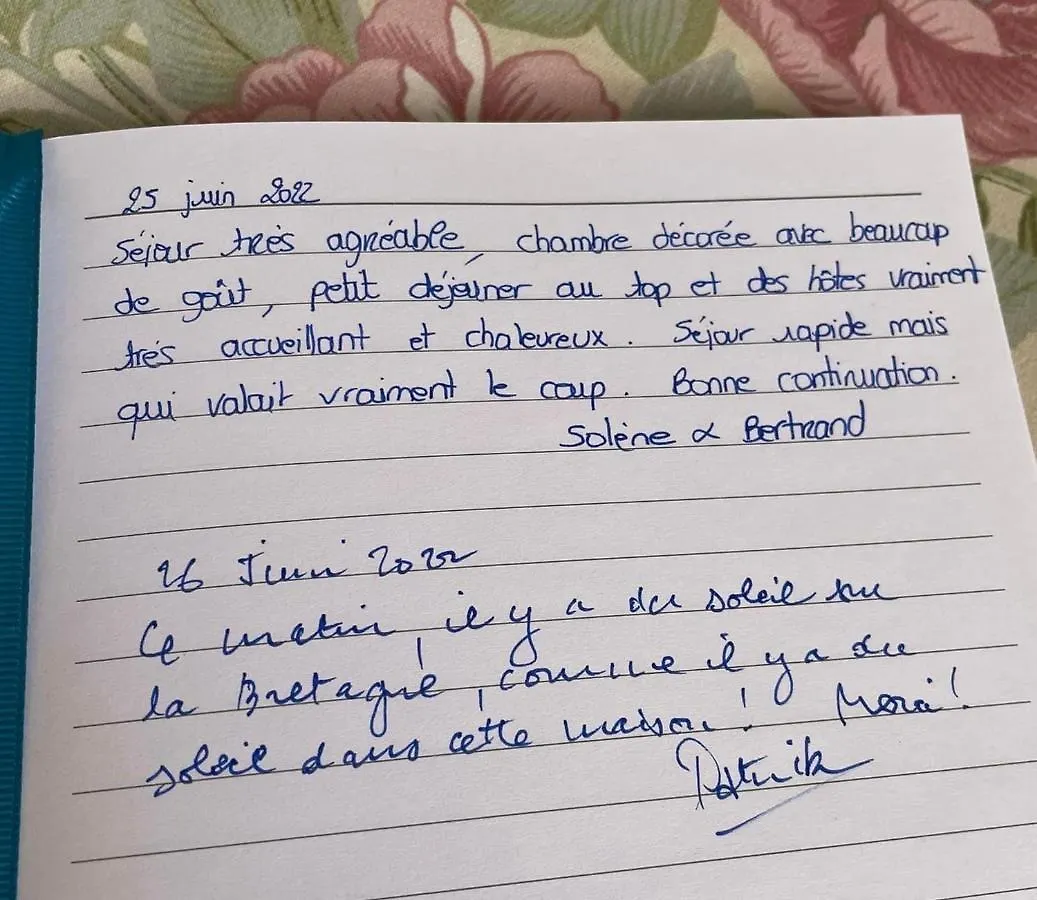 25 juin 2022
Séjour très agréable, chambre décorée avec beaucoup
de goût, petit déjeuner au top et des hôtes vraiment
très accueillant et chaleureux. Séjour rapide mais
qui valait vraiment le coup. Bonne continuation.
Solène & Bertrand
26 Juin 2022
Ce matin, il y a du soleil sur
la Bretagne, comme il y a du
soleil dans cette maison! Merci!
Patrick